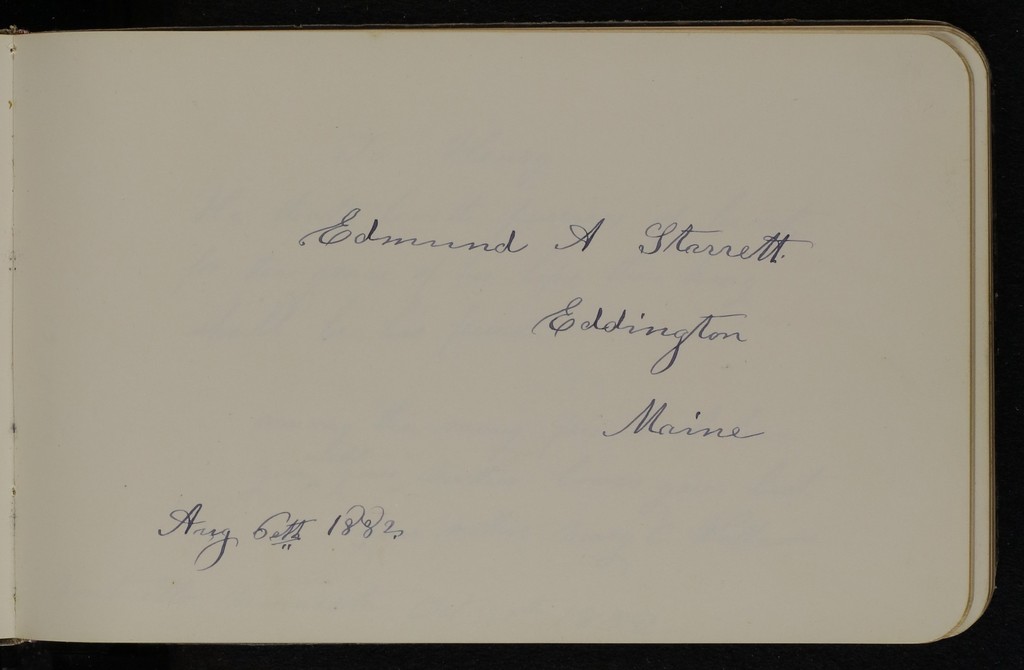 Edmund A Starrett.
Eddington
Maine
Aug 6th 1882